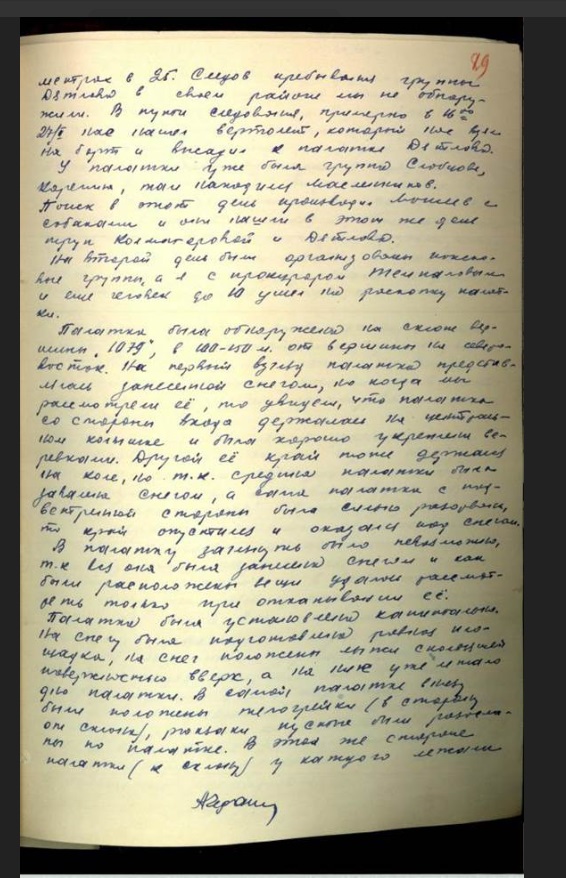 29
метрах в 25. Следов пребывания группы
Дятлова в своем районе мы не обнару-
жили. В пункт следования, примерно в 16 00
27/II нас нашел вертолет, который нас взял
на борт и высадил к палатке Дятлова.
У палатки уже была группа Слобцова,
Карелина, там находился Масленников.
Поиск в этот день производил Мошев с
собаками и они нашли в этот же день
труп Колмогоровой и Дятлова.
На второй день были организованы поиско-
вые группы, а я с прокурором Темпаловым
и еще человек до 10 ушел на раскопку палат-
ки.
Палатка была обнаружена на склоне вер-
шины "1079", в 100-150 м. от вершины на северо-
восток. На первый взгляд палатка представ-
лялась занесенной снегом, но когда мы
рассмотрели её, то увидели, что палатка
со стороны входа держалась на централь-
ном колышке и была хорошо укреплена ве-
ревками. Другой её край тоже держался
на коле, но т.к. средина палатки была
завалена снегом, а сама палатка с под-
ветренной стороны была сильно разорвана,
то край опустился и оказался под снегом.
В палатку заглянуть было невозможно,
т.к вся она была занесена снегом и как
были расположены вещи удалось рассмот-
реть только при откапывании её.
Палатка была установлена капитально.
На снегу была подготовлена ровная пло-
щадка, на снег положены лыжи скользящей
поверхностью вверх, а на них уже лежало
дно палатки. В самой палатке внизу
были положены телогрейки (в сторону
от склона), рюкзаки пустые были разосла-
ны по палатке. В этой же стороне
палатки (к склону) у каждого лежали